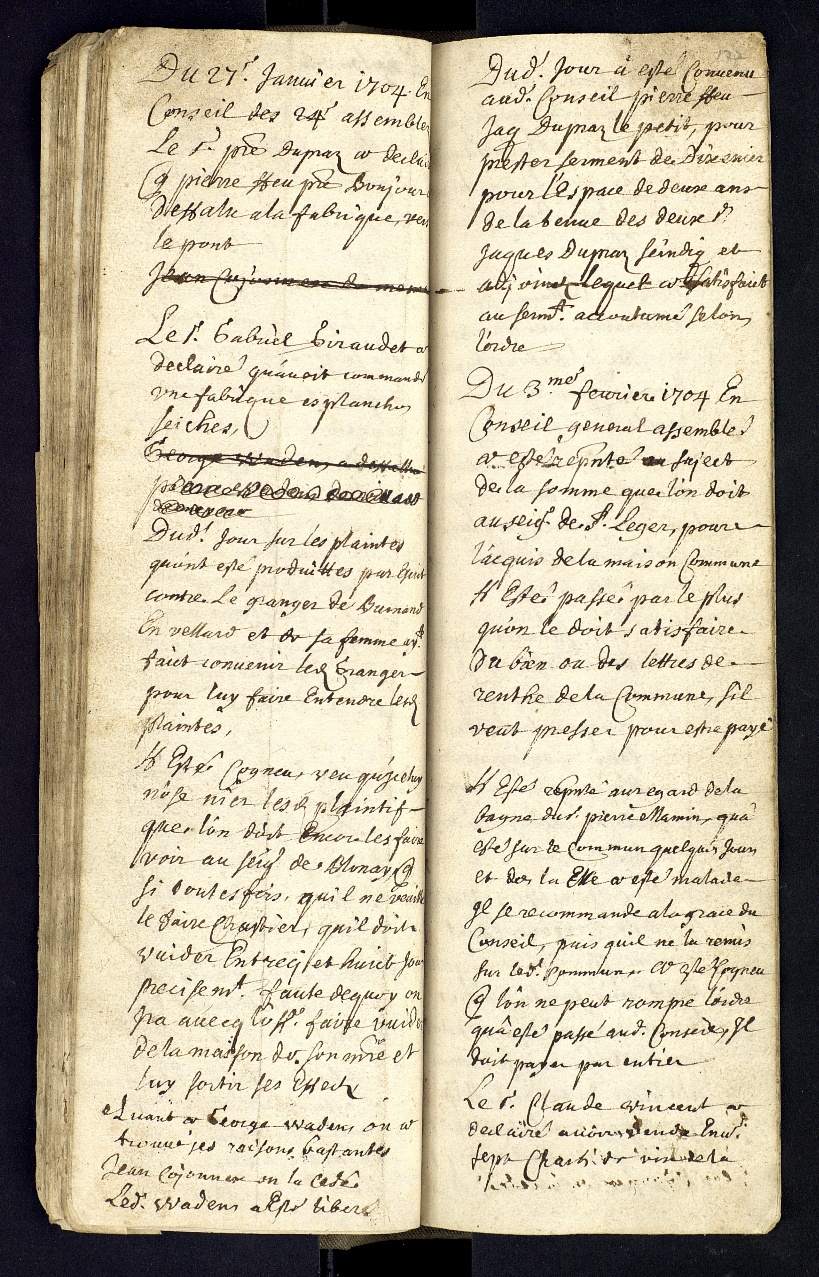 Du 27.e Januier 1704. En
Conseil des 24 assemble
Le Sr. pre Dupraz a declai
q pierre ffeu pre Bonjour
Deffalu a la fabrique, ver
le pont
Jean Cojonnex
Le Sr. Gabriel Giraudet a
declairé quauoit commandé
vne fabrique es planches
seiches,
George Wadens,
Dud.t Jour sur les plaintes
quont esté produittes par
contre Le granger de Burnand
En vellard et de sa femme
faict convenir led Granger
pour luy faire Entendre lesd
plaintes,
Jl Esté Cogneu, veu
nose nier lesd plaintif
que lon doit Encor les faire
voir au seigr de Blonay, q
si toutesfois, quil ne veuille
le faire Chastier, quil doit
vuider Entrecj et huict Jour
precisemt. faute dequoy on
Jra auecq loff. faire vuider
de la maison de son mre et
luy sortir ses Effectz
Quant a George Wadens on a
trouué ses raisons bastantes
Jean Cojonnex on la cedé
Led. Wadens a Esté liberé
Dud.t Jour a esté Convenu
aud. Conseil pierre ffeu
Jaq Dupraz le petit, pour
prester serment de Dixenier
pour l'Espace de deux ans
de la tenue des deux Sr
Jaques Dupraz seindiq et
adjoinct Lequel a satisfaict
au sermt. accoutumé selon
lordre
Du 3.mes feurier 1704 En
Conseil general assemblé
a esté repnté au suject
de la somme que lon doit
au seigr. de St. Leger, pour
lacquis de la maison Commune
Jl Estes passes par le plus
quon le doit satisfaire
Du bien ou des lettres de
renthe de la Commune, sil
veut presser pour estre payé
Jl Estes repnté au regard de la
bagne du Sr. pierre Mamin, qua
esté sur le Commun quelques Jours
et des la Elle a esté malade
Jl se recommande a la grace du
Conseil, puis quil ne la remis
sur led.t Commun, a este Cogneu
q lon ne peut rompre lordre
qua esté passé aud. Conseil, Jl
doit payer par entier
Le Sr. Claude Vincent a
declairé auoir vendu
sept Chars de vin de la